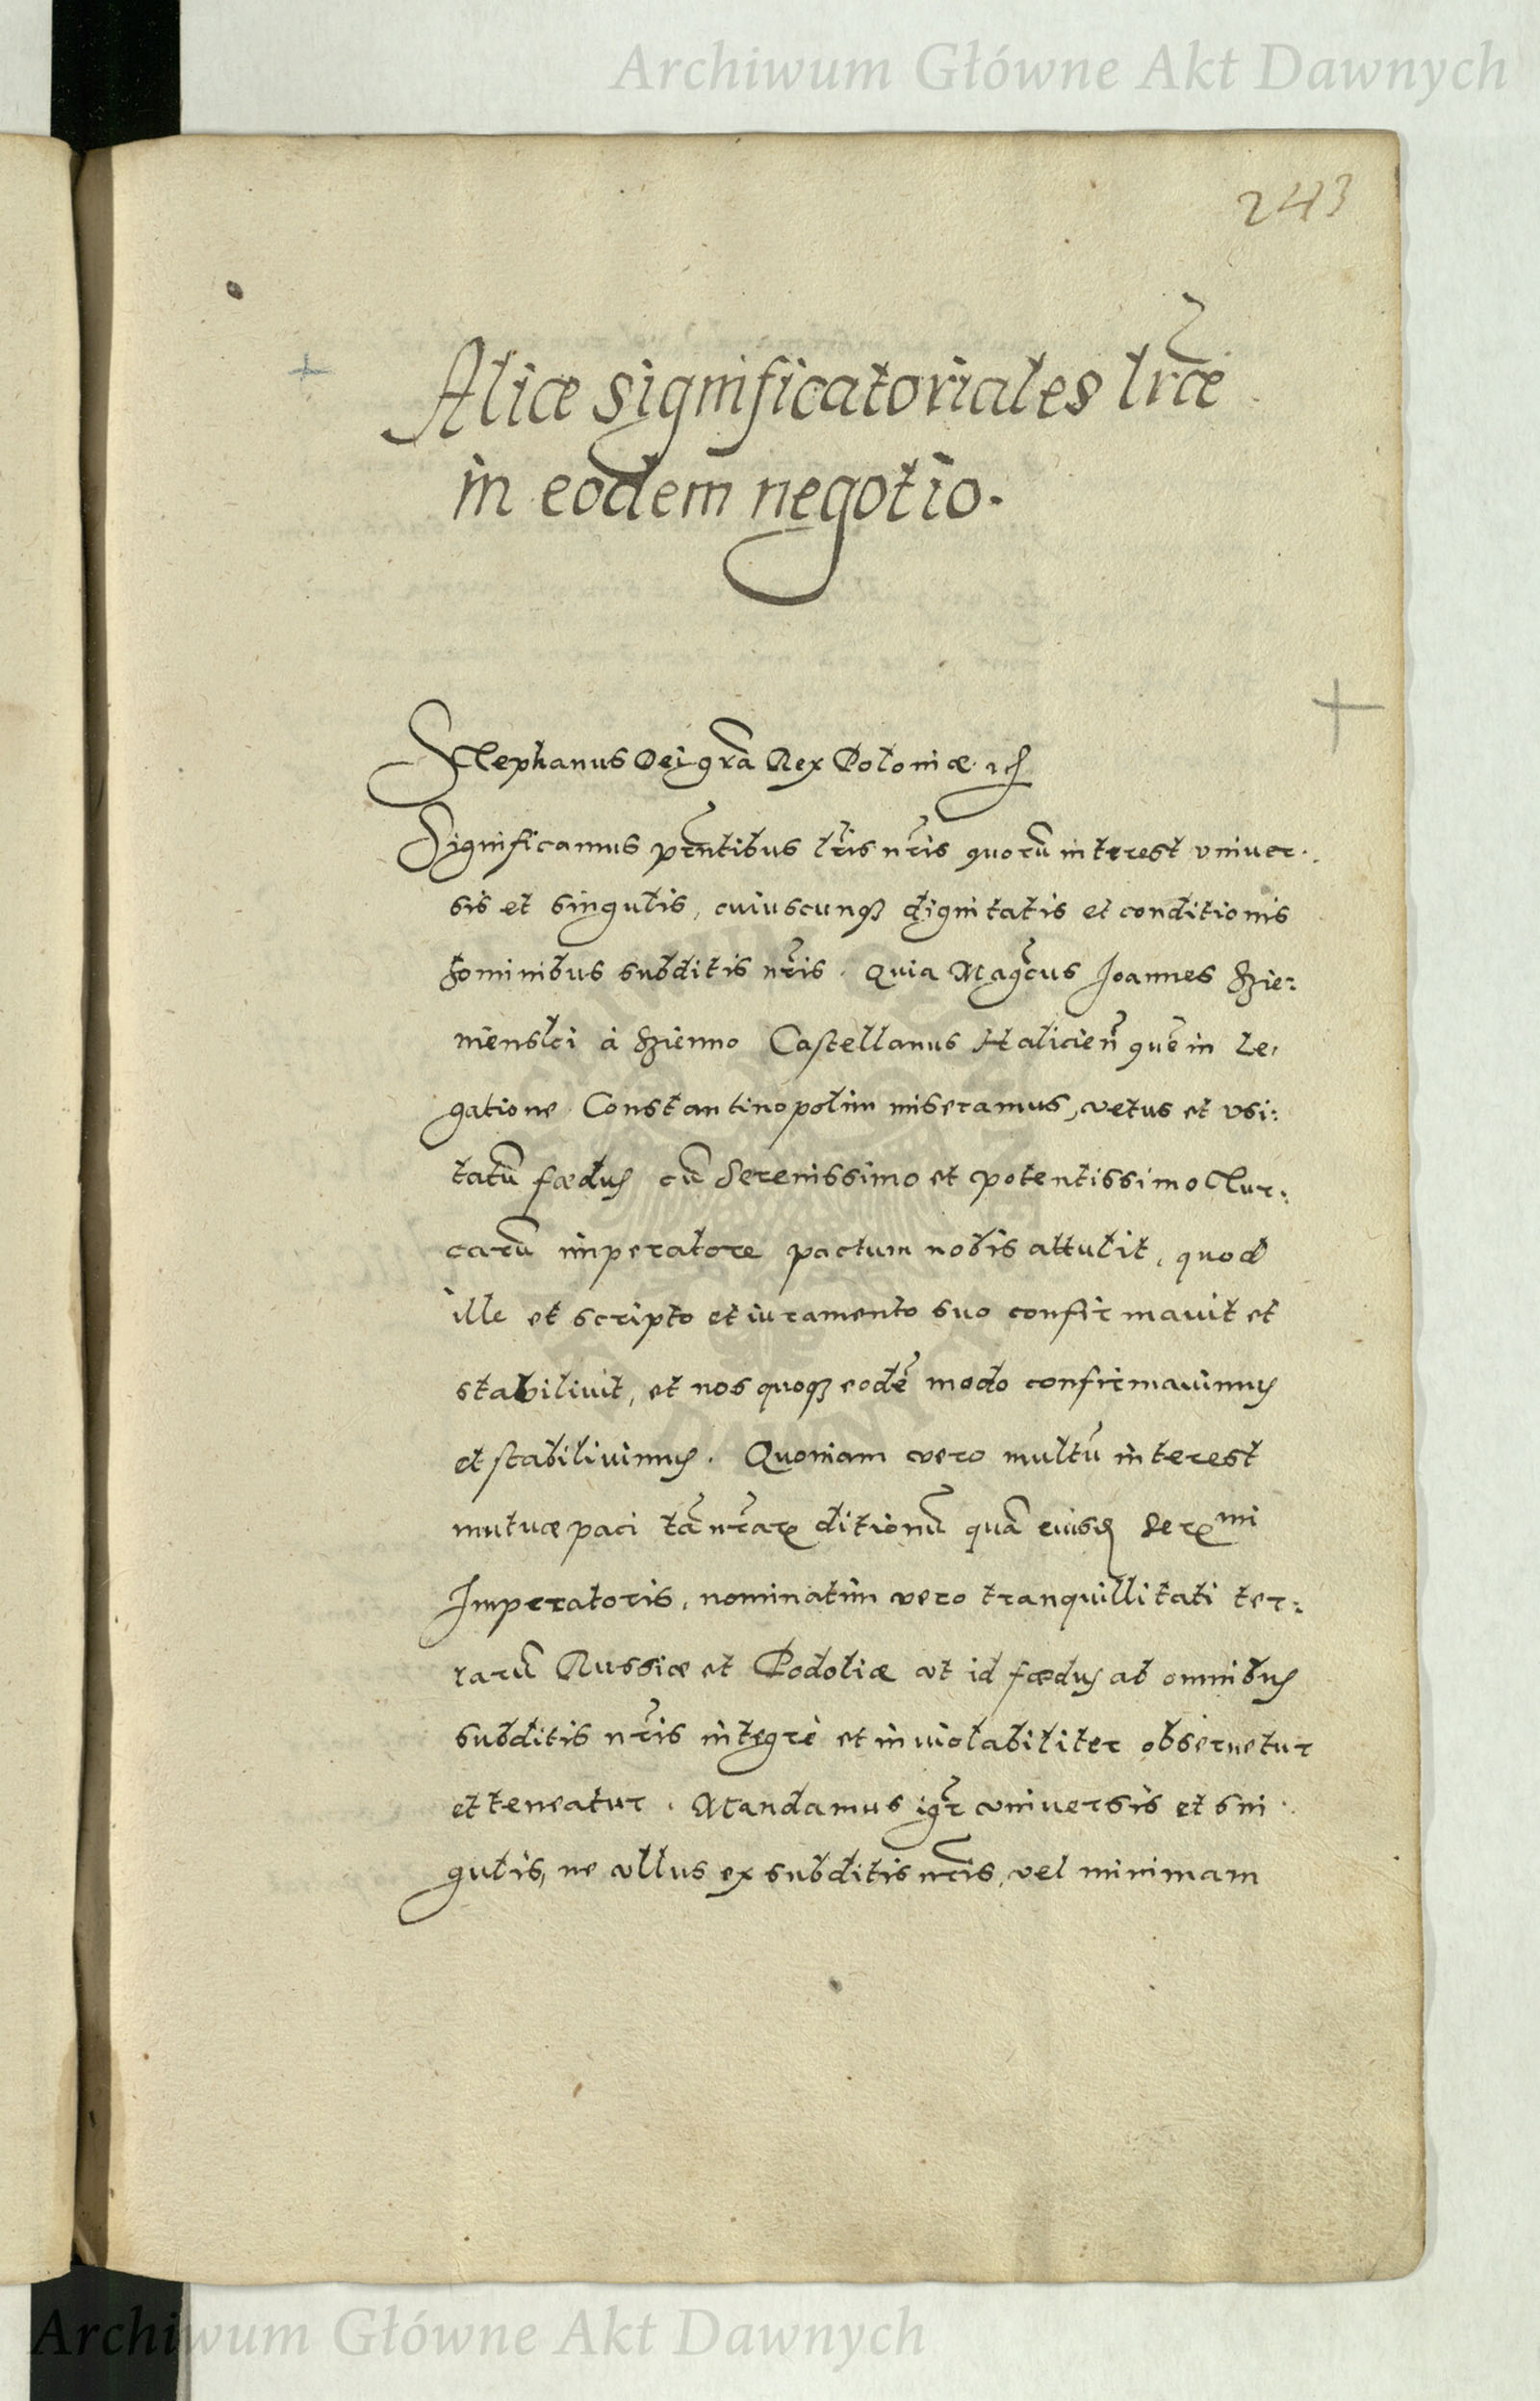 Archiwum Główne Akt Dawnych
243
Aliæ significatoriales lr̃æ
in eodem negotio.
Stephanus Dei grã Rex Poloniæ
Significamus pr̃ntibus lr̃is nr̃is quorũ interest vniuer.
sis et singulis, cuiuscunqꝫ dignitatis et conditionis
hominibus subditis nr̃is. Quia Mag̃cus Joannes Szie:
nienski à Szienno Castellanus Halicieñ quẽ in Le,
gatione Constantinopolim miseramus, vetus et vsi:
tatũ fœdus cũ Serenissimo et potentissimo Tur:
carũ imperatore pactum nobis attulit, quod
ille et scripto et iuramento suo confirmauit et
stabiliuit, et nos quoqꝫ eodẽ modo confirmauimus
et stabiliuimus. Quoniam vero multũ interest
mutuæ paci tã nr̃aꝝ ditionũ quã eiusd Serᵐⁱ
Imperatoris, nominatim vero tranquillitati ter:
rarũ Russiæ et Podoliæ vt id fœdus ab omnibus
subditis nr̃is integrè et inuiolabiliter obseruetur
et teneatur. Mandamus igr̃ vniuersis et sin.
gulis, ne vllus ex subditis nr̃is, vel minimam
Archiwum Główne Akt Dawnych